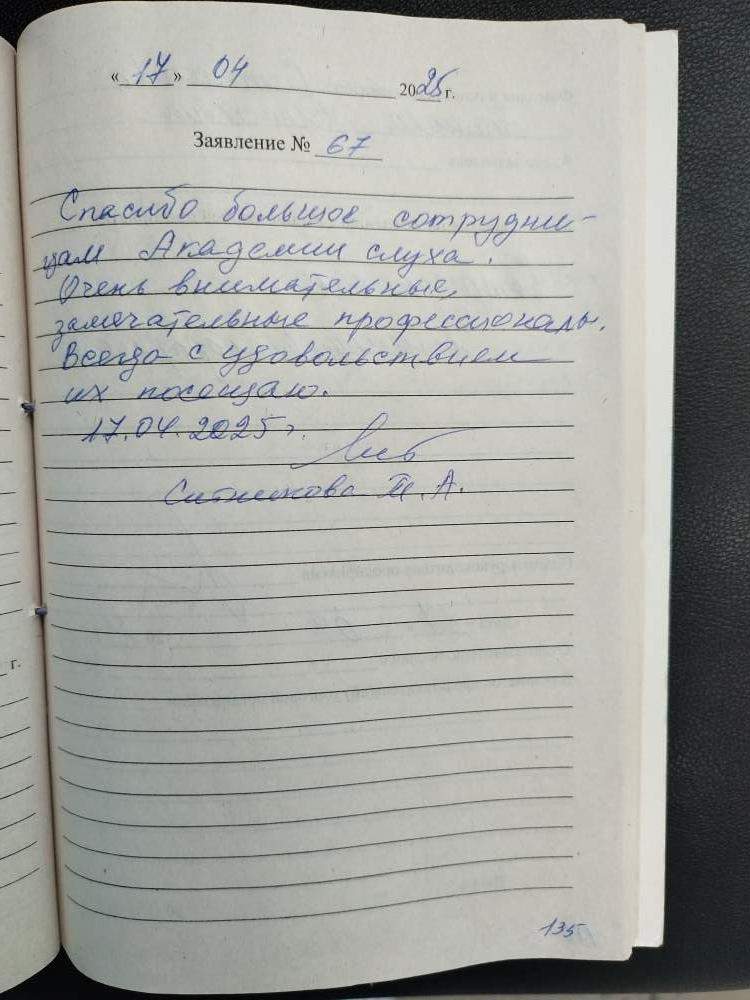 « 17 » 04 2025 г.
Заявление № 67
Спасибо большое сотрудни-
цам Академии слуха.
Очень внимательные,
замечательные профессионалы.
Всегда с удовольствием
их посещаю.
17.04.2025 г.
Ситникова Т. А.
г.
135